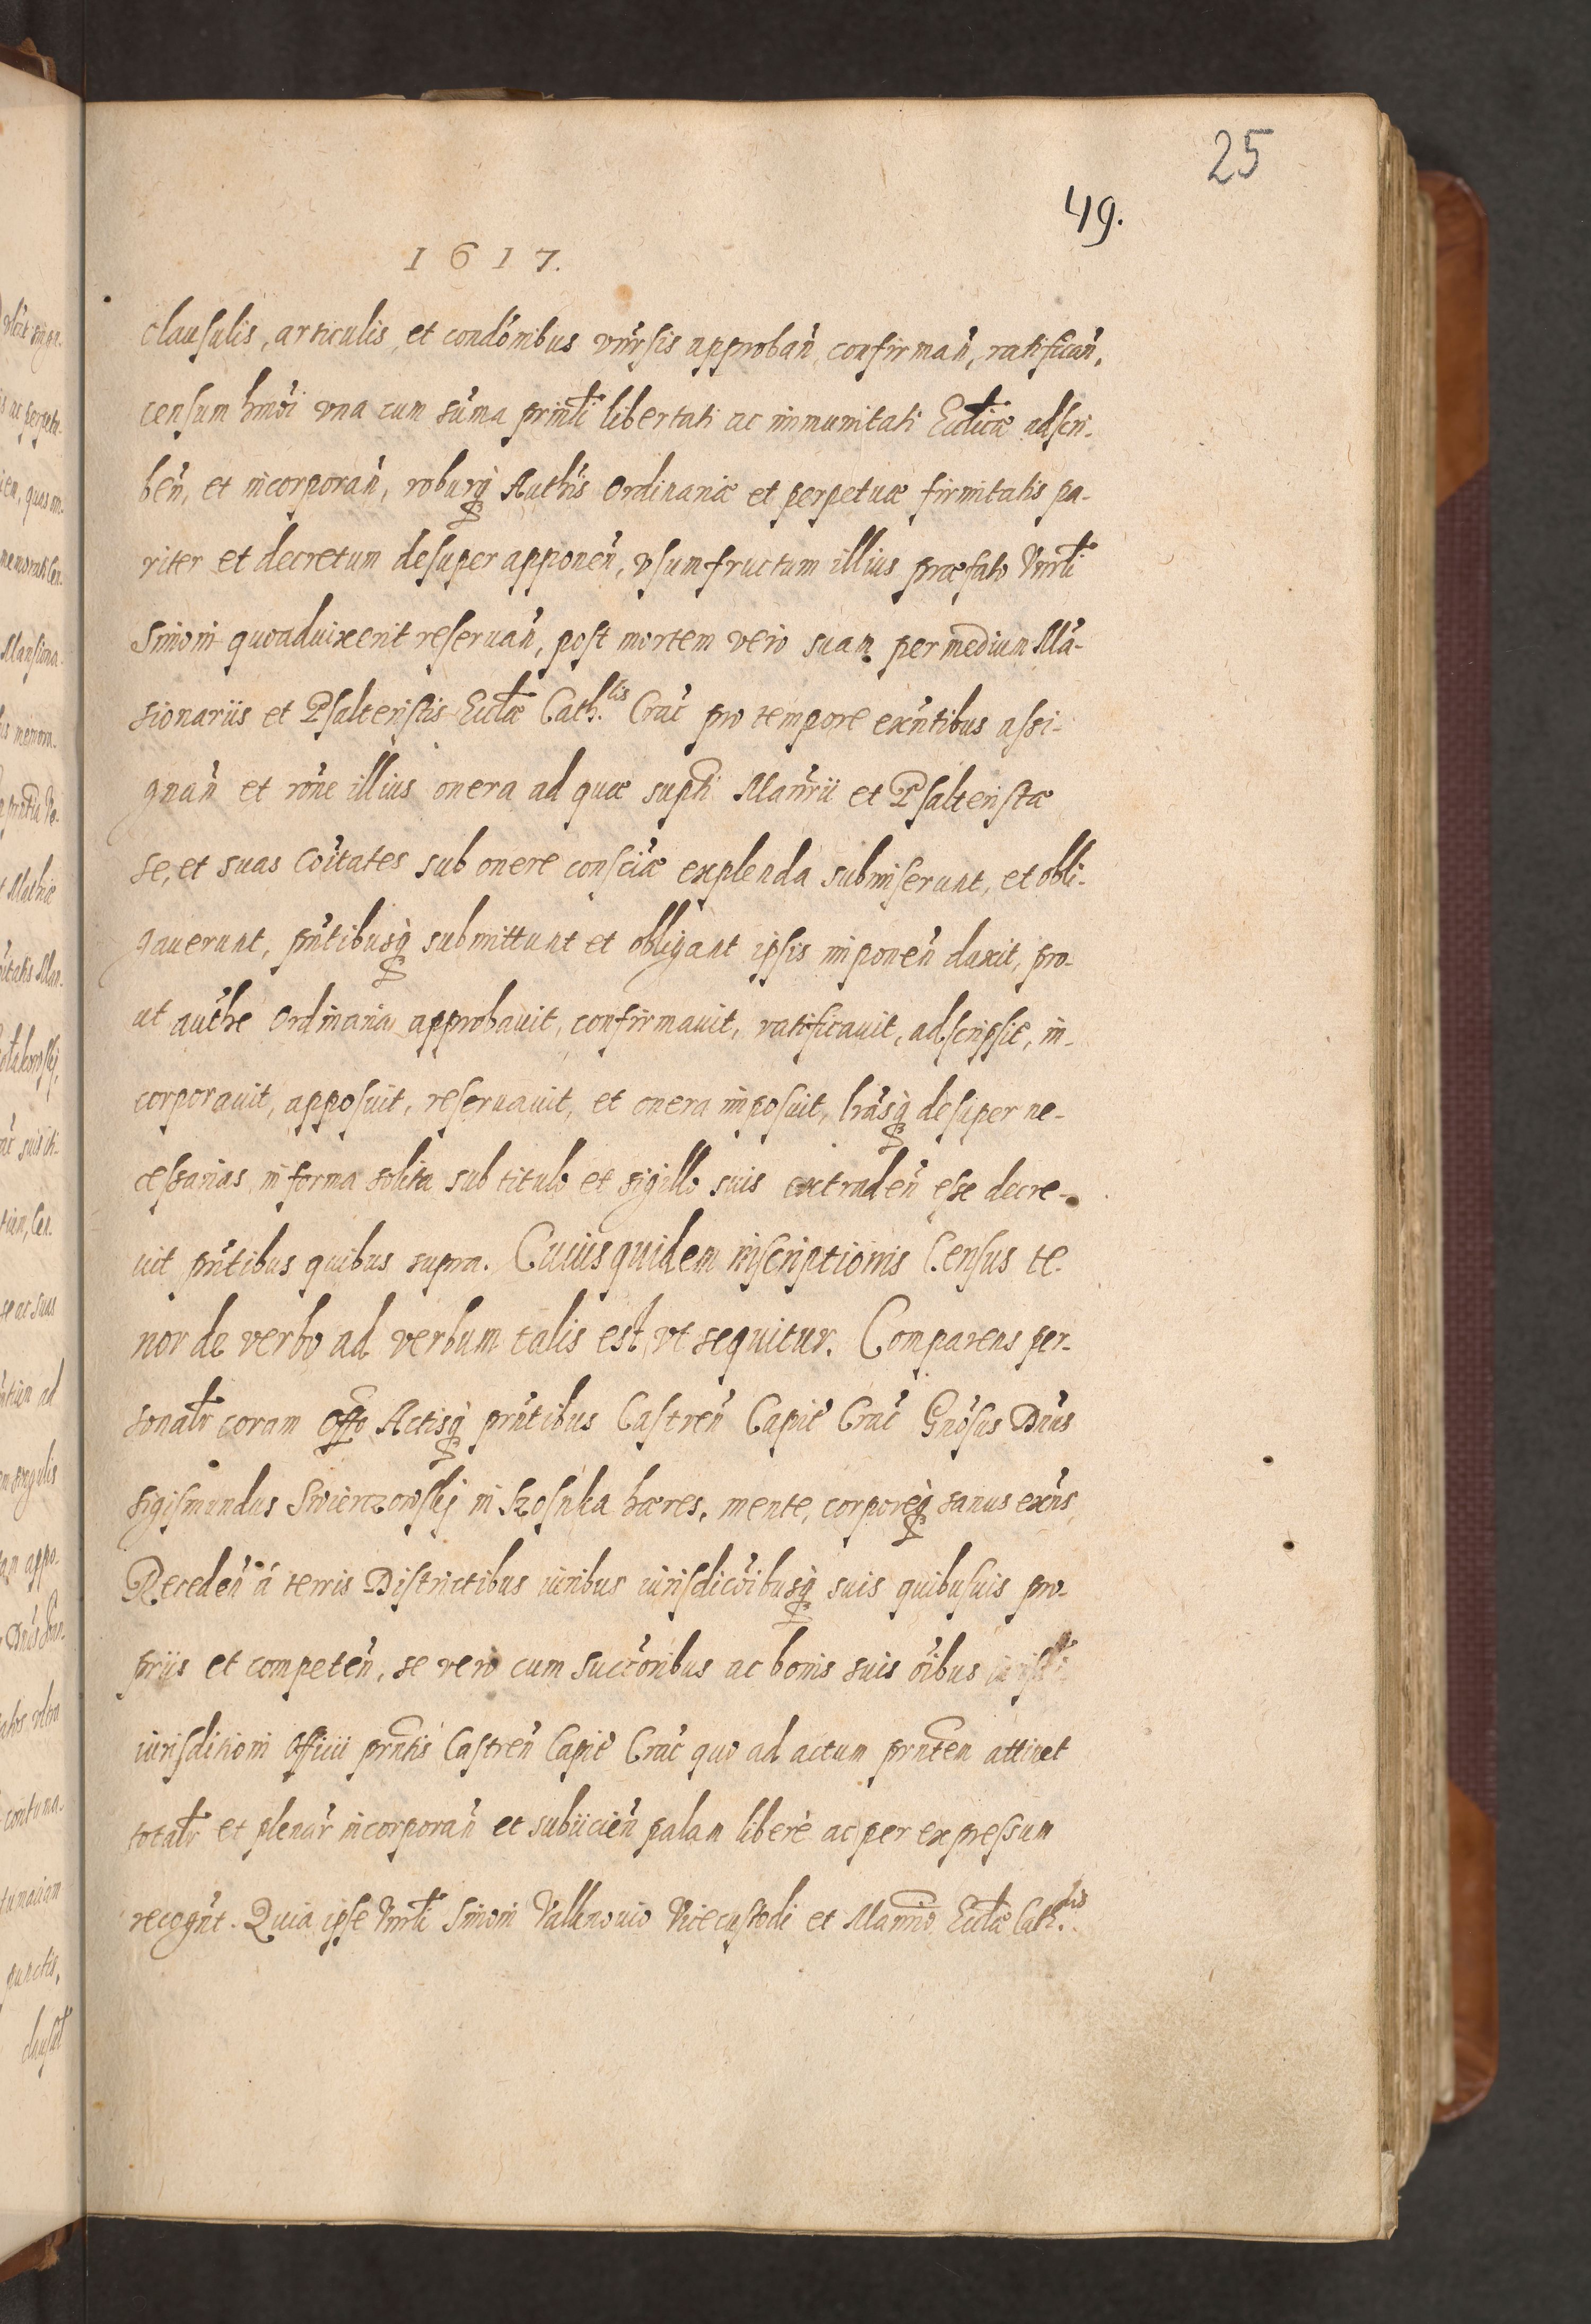 25
49.
1617.
clausulis, articulis, et condonibus vnirsis approban, confirman, ratifican,
censum hmoi vna cum suma prinli libertati ac immunitati Ecclicæ adscri-
ben, et incorporan, roburq Authis Ordinariæ et perpetuæ firmitatis pa-
riter et decretum desuper apponen, vsumfructum illius præfato Vnrli
Simoni quoaduixerit reseruan, post mortem vero suam per medium Ma-
sionariis et Psalteristis Ecclæ Cath.lis Crac pro tempore exntibus assi-
gnan et rone illius onera ad quæ supti Manrii et Psalteristæ
se, et suas coitates sub onere consciæ explenda submiserunt, et obli-
gauerunt, pntibusq submittunt et obligant ipsis imponen duxit, pro-
ut authe Ordinaria approbauit, confirmauit, ratificauit, adscripsit, in-
corporauit, apposuit, reseruauit, et onera imposuit, lrasq desuper ne-
cessarias in forma solita sub titulo et sigillo suis extraden esse decre-
uit pntibus quibus supra. Cuius quidem inscriptionis Census te-
nor de verbo ad verbum talis est vt sequitur. Comparens per-
sonalr coram Offo Actisq prntibus Castren Capit Crac Gnosus Dnus
Sigismundus Swierczowskj in Szosnka hæres, mente, corporeq sanus exns,
Receden á terris Districtibus iuribus iurisdicoibusq suis quibusuis pro-
priis et competen, se vero cum succoribus ac bonis suis oibus
iurisditioni Officii prntis Castren Capit Crac quo ad actum prntem attinet
totalr et plenar incorporan et subiicien palam liberè ac per expressum
recognt. Quia ipse Vnrli Simoni Vallinouio Vicecustodi et Manrio Ecclæ Cath.lis